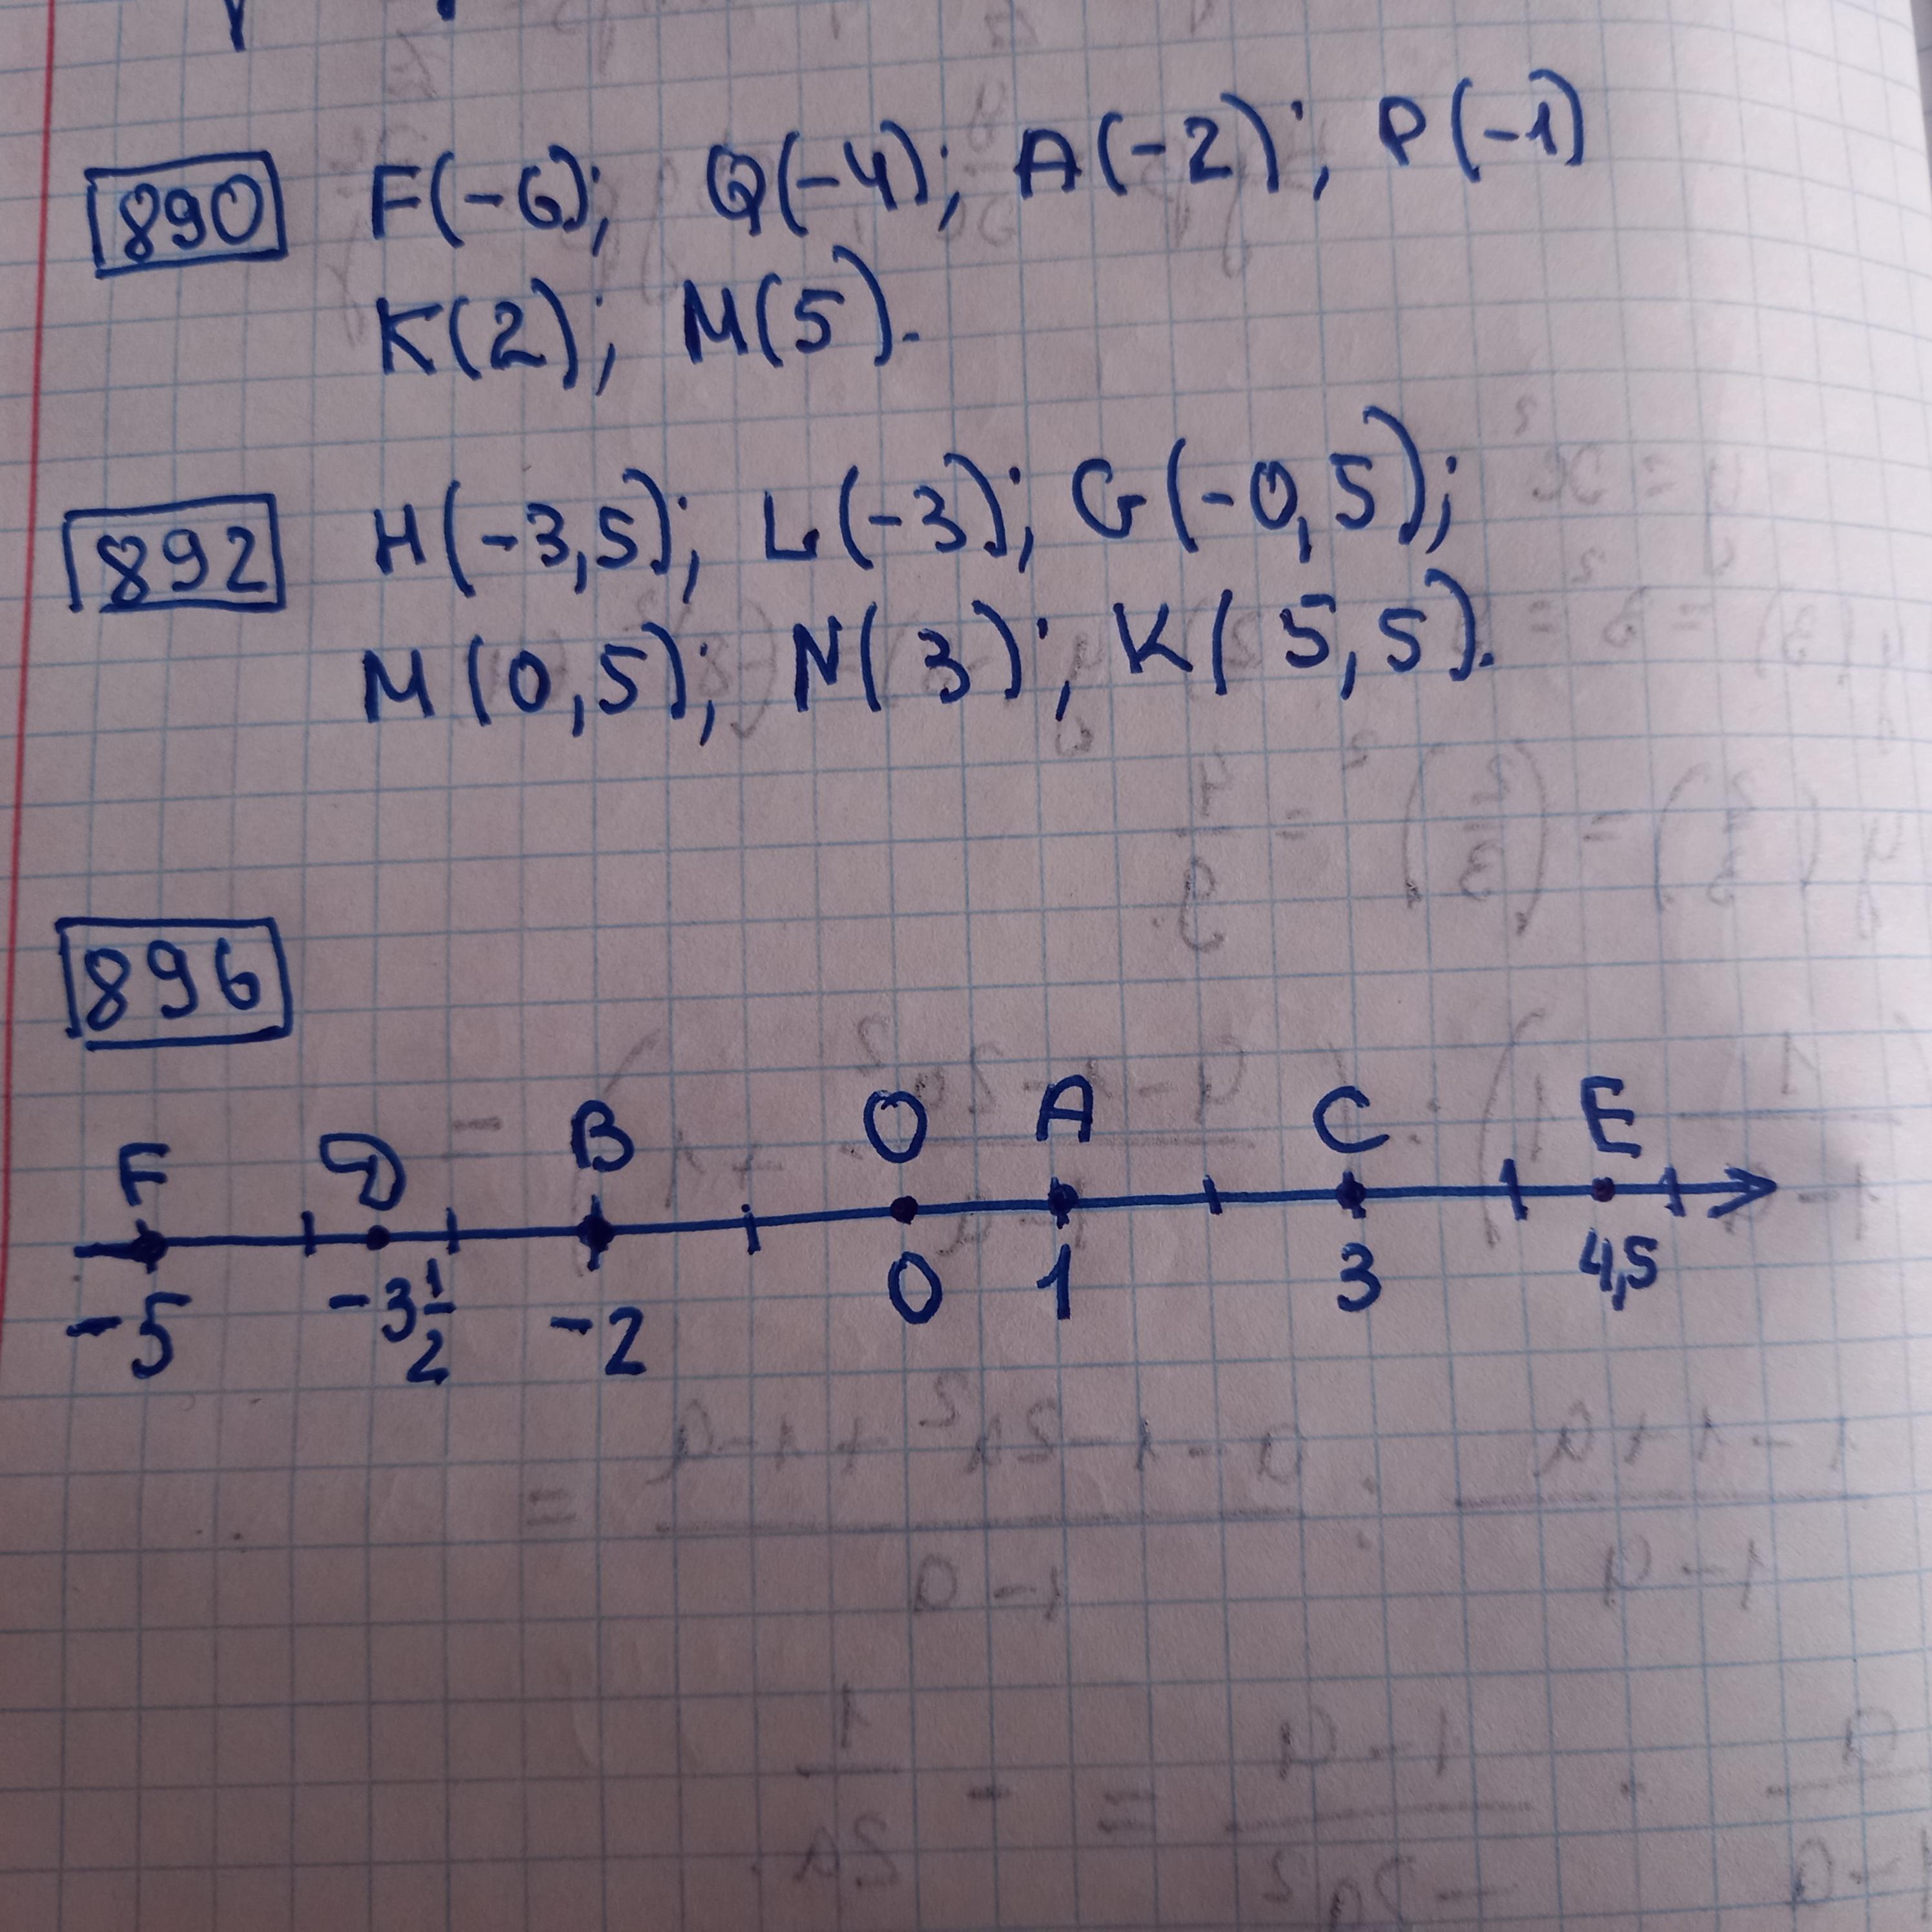 890 F(-6); Q(-4); A(-2); P(-1)
K(2); M(5).
892 H(-3,5); L(-3); G(-0,5);
M(0,5); N(3); K(5,5).
896
F D B O A C E
-5 -3 1/2 -2 0 1 3 4,5